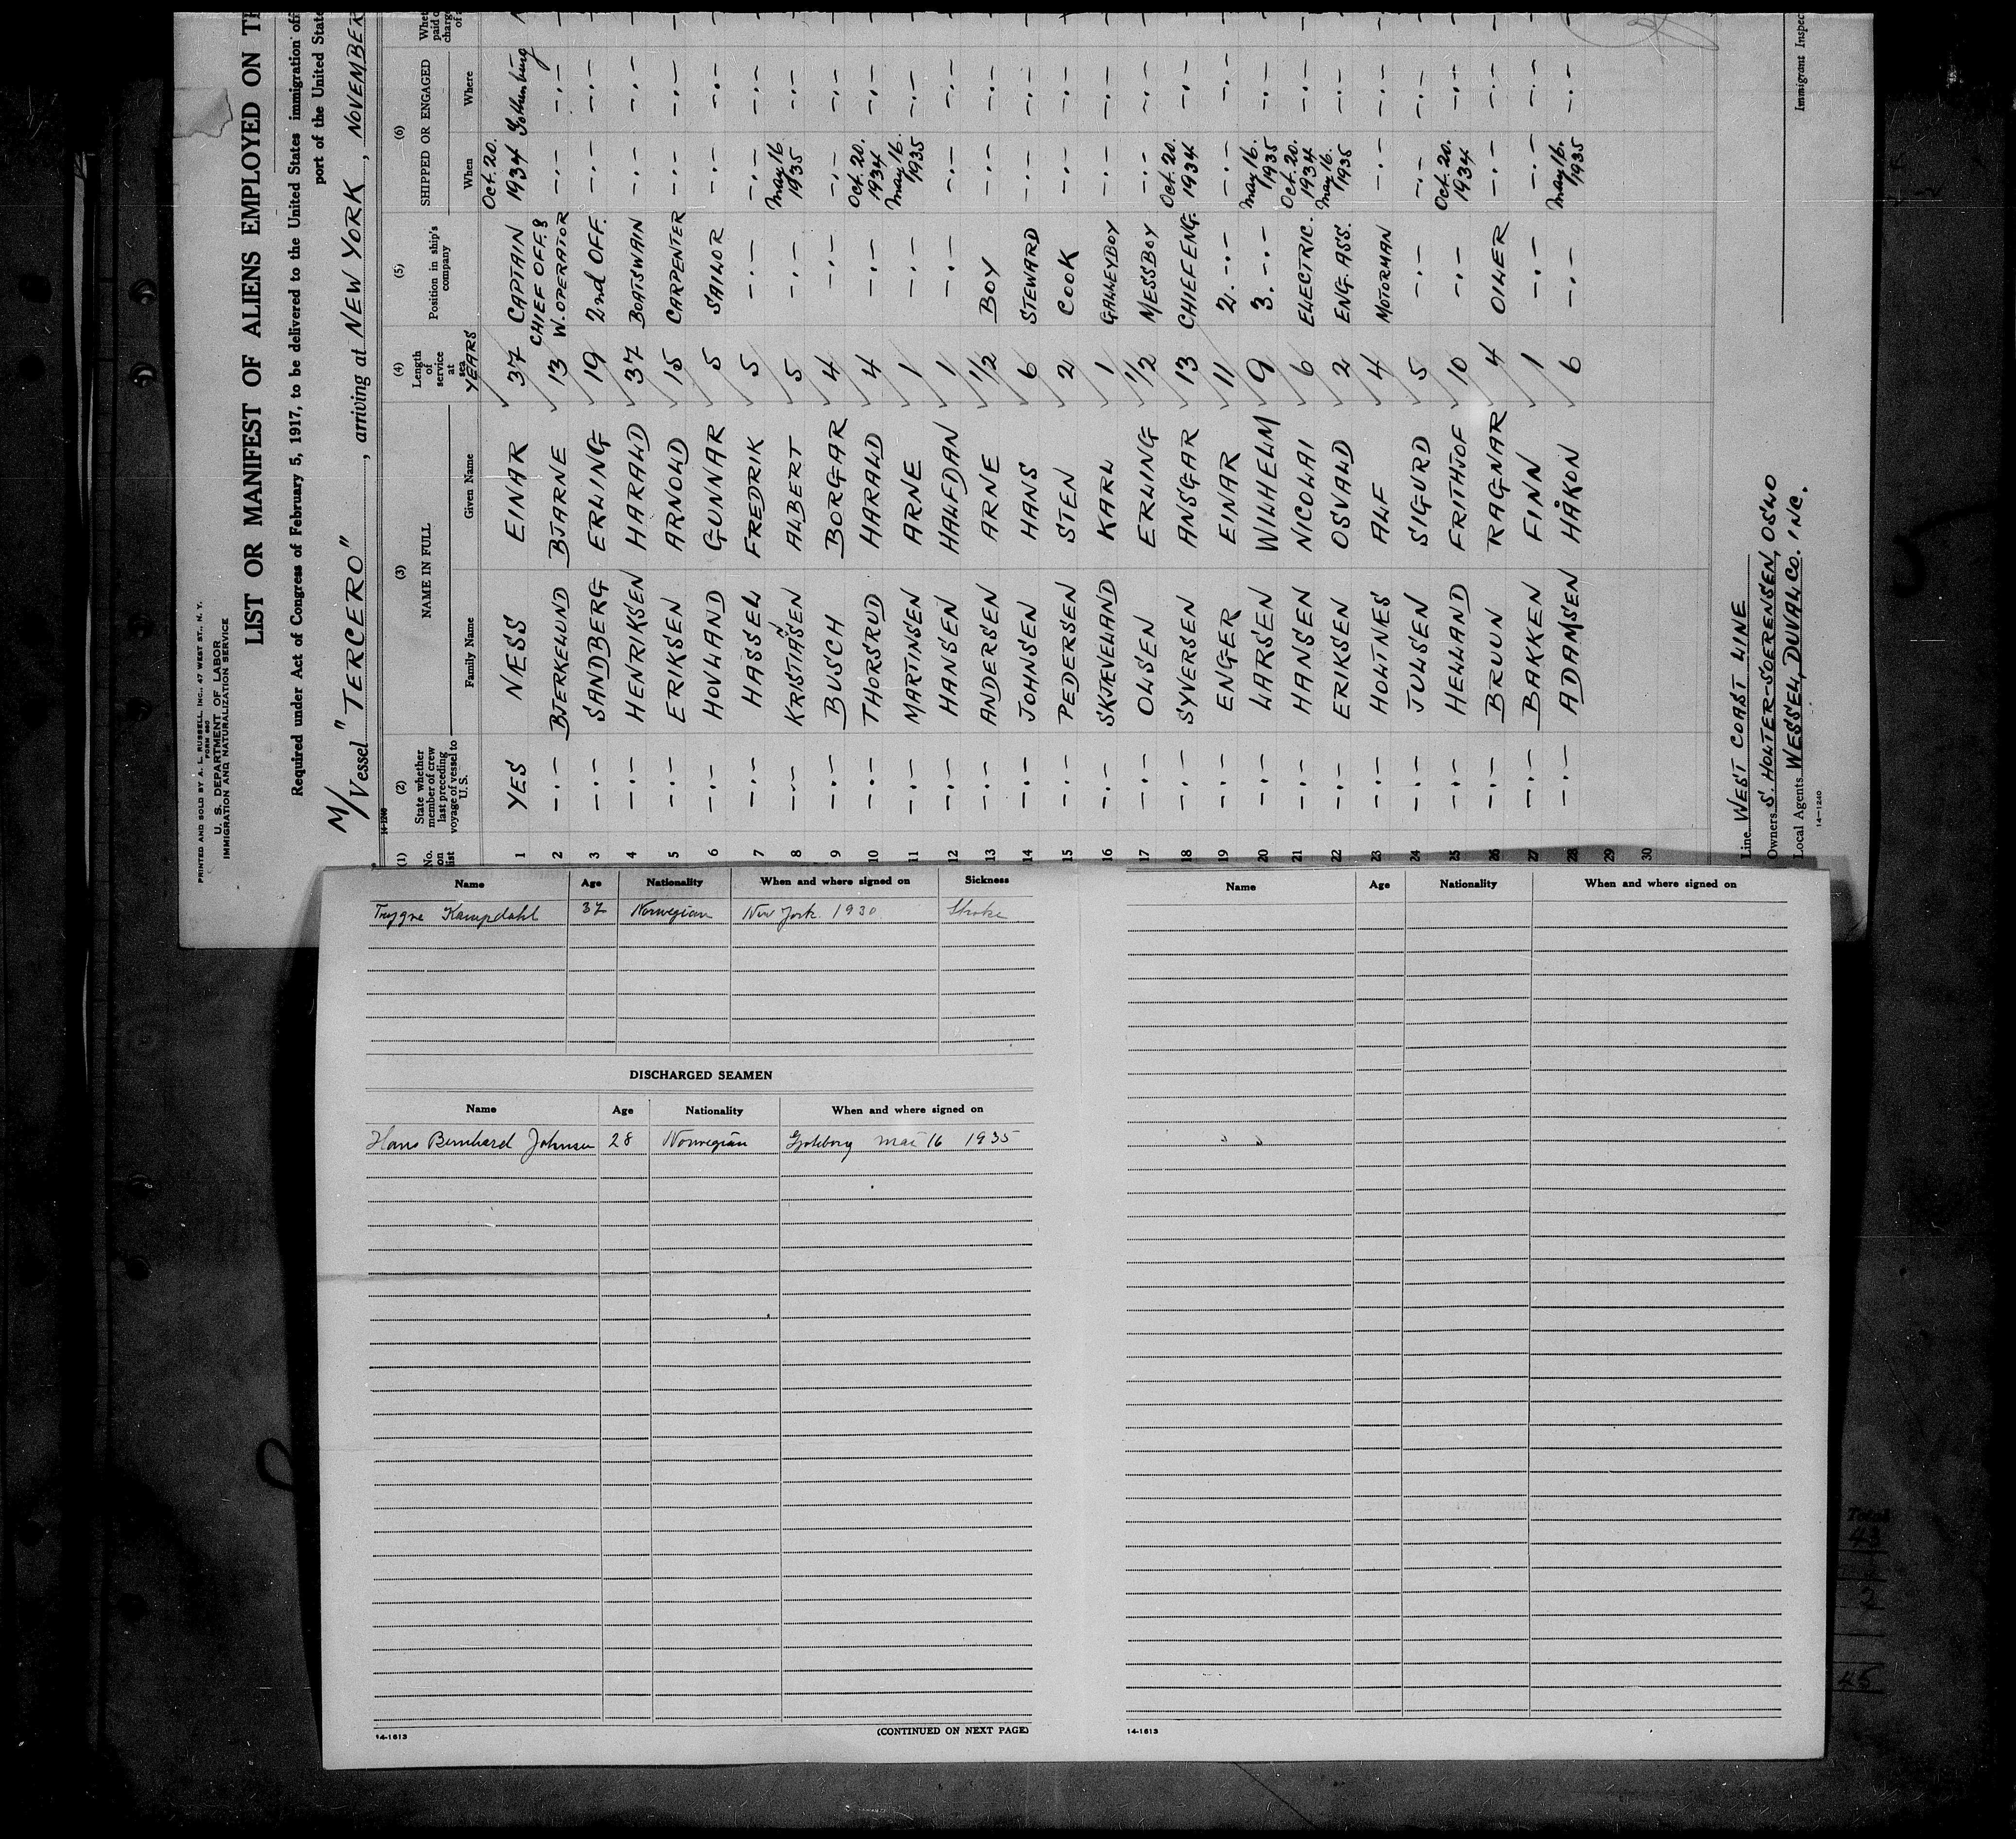 PRINTED AND SOLD BY A. L. RUSSELL, INC., 47 WEST ST., N. Y.
FORM 680
U. S. DEPARTMENT OF LABOR
IMMIGRATION AND NATURALIZATION SERVICE
LIST OR MANIFEST OF ALIENS EMPLOYED ON TH
Required under Act of Congress of February 5, 1917, to be delivered to the United States immigration off
port of the United State
M/Vessel "TERCERO", arriving at NEW YORK, NOVEMBER
14-1240
(1) No. on list (2) State whether member of crew last preceding voyage of vessel to U.S. (3) NAME IN FULL Family Name Given Name (4) Length of service at sea YEARS (5) Position in ship's company (6) SHIPPED OR ENGAGED When Where
1 YES NESS EINAR 37 CAPTAIN Oct. 20. 1934 Gothenburg
2 -·- BJERKELUND BJARNE 13 CHIEF OFF. & W. OPERATOR -·- -·-
3 -·- SANDBERG ERLING 19 2nd OFF. -·- -·-
4 -·- HENRIKSEN HARALD 37 BOATSWAIN -·- -·-
5 -·- ERIKSEN ARNOLD 15 CARPENTER -·- -·-
6 -·- HOVLAND GUNNAR 5 SAILOR -·- -·-
7 -·- HASSEL FREDRIK 5 -·- -·- -·-
8 -·- KRISTIASEN ALBERT 5 -·- May 16 1935 -·-
9 -·- BUSCH BORGAR 4 -·- -·- -·-
10 -·- THORSRUD HARALD 4 -·- Oct. 20. 1934 -·-
11 -·- MARTINSEN ARNE 1 -·- May 16. 1935 -·-
12 -·- HANSEN HALFDAN 1 -·- -·- -·-
13 -·- ANDERSEN ARNE 1/2 BOY -·- -·-
14 -·- JOHNSEN HANS 6 STEWARD -·- -·-
15 -·- PEDERSEN STEN 2 COOK -·- -·-
16 -·- SKJEVELAND KARL 1 GALLEYBOY -·- -·-
17 -·- OLSEN ERLING 1/2 MESSBOY -·- -·-
18 -·- SYVERSEN ANSGAR 13 CHIEF ENG. Oct. 20. 1934 -·-
19 -·- ENGER EINAR 11 2. -·- -·- -·-
20 -·- LARSEN WILHELM 9 3. -·- May 16. 1935 -·-
21 -·- HANSEN NICOLAI 6 ELECTRIC. Oct. 20. 1934 -·-
22 -·- ERIKSEN OSVALD 2 ENG. ASS. May 16. 1935 -·-
23 -·- HOLTNES ALF 4 MOTORMAN -·- -·-
24 -·- JULSEN SIGURD 5 -·- -·- -·-
25 -·- HELLAND FRITHJOF 10 -·- Oct. 20. 1934 -·-
26 -·- BRUUN RAGNAR 4 OILER -·- -·-
27 -·- BAKKEN FINN 1 -·- -·- -·-
28 -·- ADAMSEN HÅKON 6 -·- May 16. 1935 -·-
29
30
Line WEST COAST LINE
Owners S. HOLTER-SOERENSEN, OSLO
Local Agents WESSEL, DUVAL CO. INC.
Immigrant Inspec
14-1240
Name Age Nationality When and where signed on Sickness
Trygve Kampdahl 37 Norwegian New York 1930 Stroke
DISCHARGED SEAMEN
Name Age Nationality When and where signed on
Hans Bernhard Johnsen 28 Norwegian Goteborg mai 16 1935
(CONTINUED ON NEXT PAGE)
14-1613
Name Age Nationality When and where signed on
14-1613
Total
43
2
45